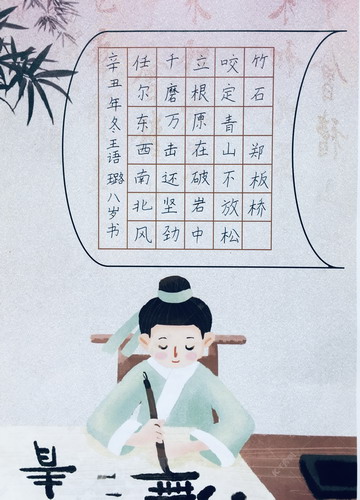 竹石 郑板桥
咬定青山不放松
立根原在破岩中
千磨万击还坚劲
任尔东西南北风
辛丑年冬王语璐八岁书